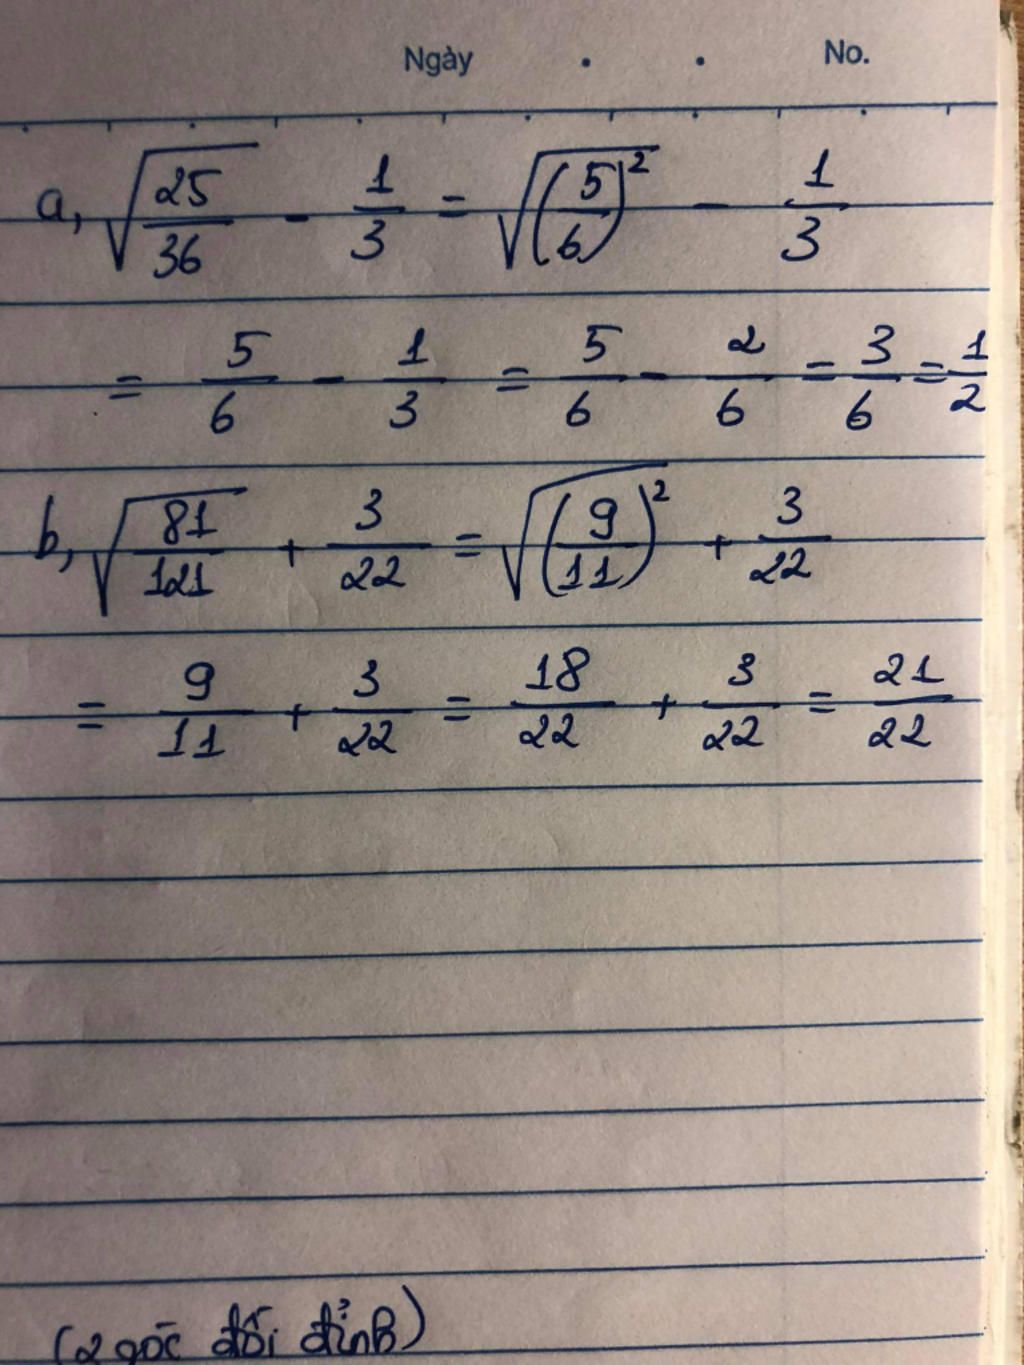 Ngày . . No.
a, √(25/36) - 1/3 = √((5/6)²) - 1/3
= 5/6 - 1/3 = 5/6 - 2/6 = 3/6 = 1/2
b, √(81/121) + 3/22 = √((9/11)²) + 3/22
= 9/11 + 3/22 = 18/22 + 3/22 = 21/22
(2 góc đối đỉnh)